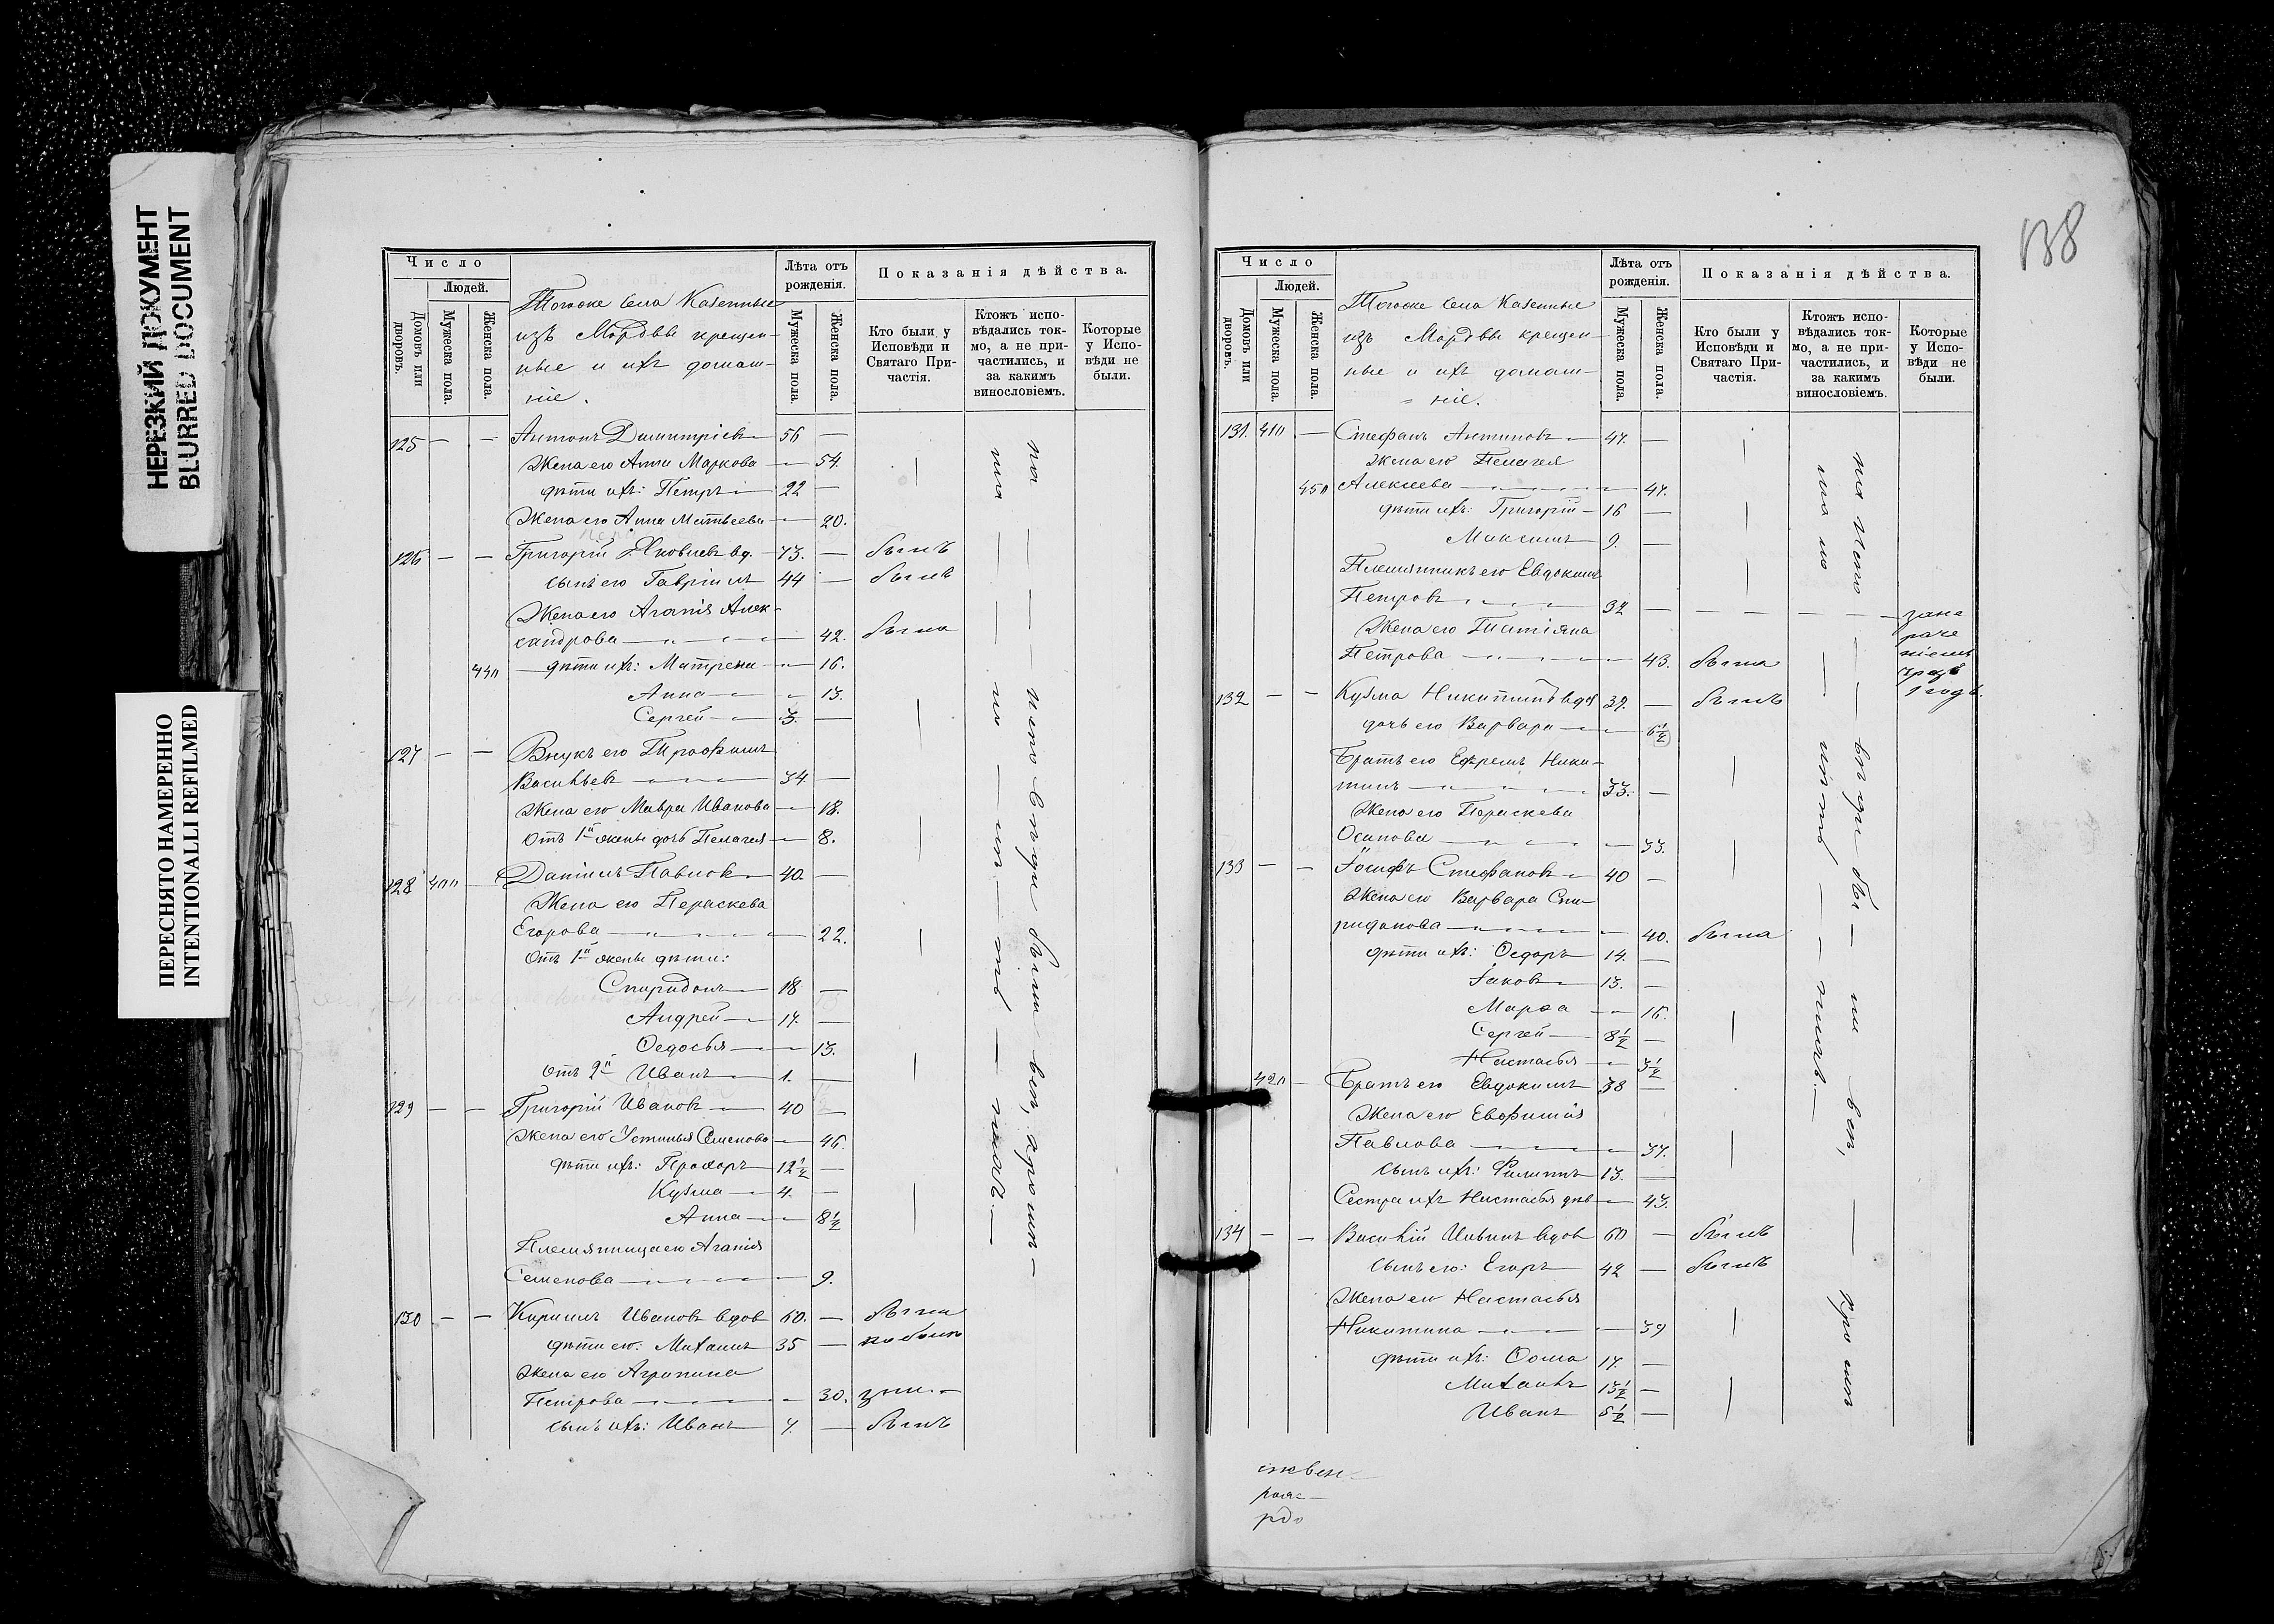 НЕРЕЗКИЙ ДОКУМЕНТ
BLURRED DOCUMENT
ПЕРЕСНЯТО НАМЕРЕННО
INTENTIONALLI REFILMED
Число
Людей.
Домовъ или дворовъ.
Мужеска пола.
Женска пола.
Тогоже села Казенные
изъ Мордвы крещен-
ные и ихъ домаш-
ніе.
Лѣта отъ рожденія.
Мужеска пола.
Женска пола.
Показанія дѣйства.
Кто были у Исповѣди и Святаго При-частія.
Ктожъ испо-вѣдались ток-мо, а не при-частились, и за какимъ винословіемъ.
Которые у Испо-вѣди не были.
125 — — Антонъ Димитріевъ 56 —
Жена его Анна Маркова — 54.
дѣти ихъ: Петръ 22 —
Жена его Анна Матвеева — 20.
126 — — Григорій Яковлевъ вд. 73. — былъ
сынъ его Гавріилъ 44 — былъ
Жена его Агапія Алек-
сандрова — 42. была
440 дѣти ихъ: Матрена — 16.
Анна — 13.
Сергей 3. —
127 — — Внукъ его Трофимъ
Васильевъ 34. —
Жена его Мавра Иванова — 18.
Отъ 1й жены дочь Пелагея — 8.
128 400 — Даніилъ Павловъ 40. —
Жена его Параскева
Егорова — 22.
Отъ 1й жены дѣти:
Спиридонъ 18 —
Андрей 17. —
Ѳедосья — 13.
Отъ 2й Иванъ 1. —
129 — — Григорій Ивановъ 40 —
Жена его Устинья Семенова — 46.
дѣти ихъ: Прохоръ 12½ —
Кузма 4. —
Анна — 8½
Племянница его Агапія
Семенова — 9.
130 — — Кирилъ Ивановъ вдов 60. — была
дѣти его: Михаилъ 35 —
Жена его Агрипина
Петрова — 30.
сынъ ихъ: Иванъ 7. — былъ
138
Число
Людей.
Домовъ или дворовъ.
Мужеска пола.
Женска пола.
Тогоже села Казенные
изъ Мордвы крещен-
ные и ихъ домаш-
= ніе.
Лѣта отъ рожденія.
Мужеска пола.
Женска пола.
Показанія дѣйства.
Кто были у Исповѣди и Святаго При-частія.
Ктожъ испо-вѣдались ток-мо, а не при-частились, и за какимъ винословіемъ.
Которые у Испо-вѣди не были.
131. 410 — Стефанъ Антиповъ 47. —
жена его Пелагея
450 Алексеева — 47.
дѣти ихъ: Григорій 16 —
Максимъ 9. —
Племянникъ его Евдокимъ
Петровъ 32 —
Жена его Татіяна
Петрова — 43. была
132 — — Кузма Никитинъ вдов 39. — былъ
дочь его Варвара — 6½
Братъ его Ефремъ Ники-
тинъ 33. —
Жена его Параскева
Осипова — 33.
133 — — Іосифъ Стефановъ 40 —
Жена его Варвара Спи-
ридонова — 40. была
дѣти ихъ: Ѳедоръ 14. —
Іаковъ 13. —
Марѳа — 16.
Сергей 8½ —
Настасья — 3½
420 — Братъ его Евдокимъ 38 —
Жена его Евфимія
Павлова — 37.
сынъ ихъ: Филиппъ 13. —
Сестра ихъ Настасья дѣв — 43.
134 — — Василій Иввинъ вдов 60 — былъ
сынъ его: Егоръ 42 — былъ
Жена его Настасья
Никитина — 39
дѣти ихъ: Ѳома 17. —
Михаилъ 13½ —
Иванъ 5½ —